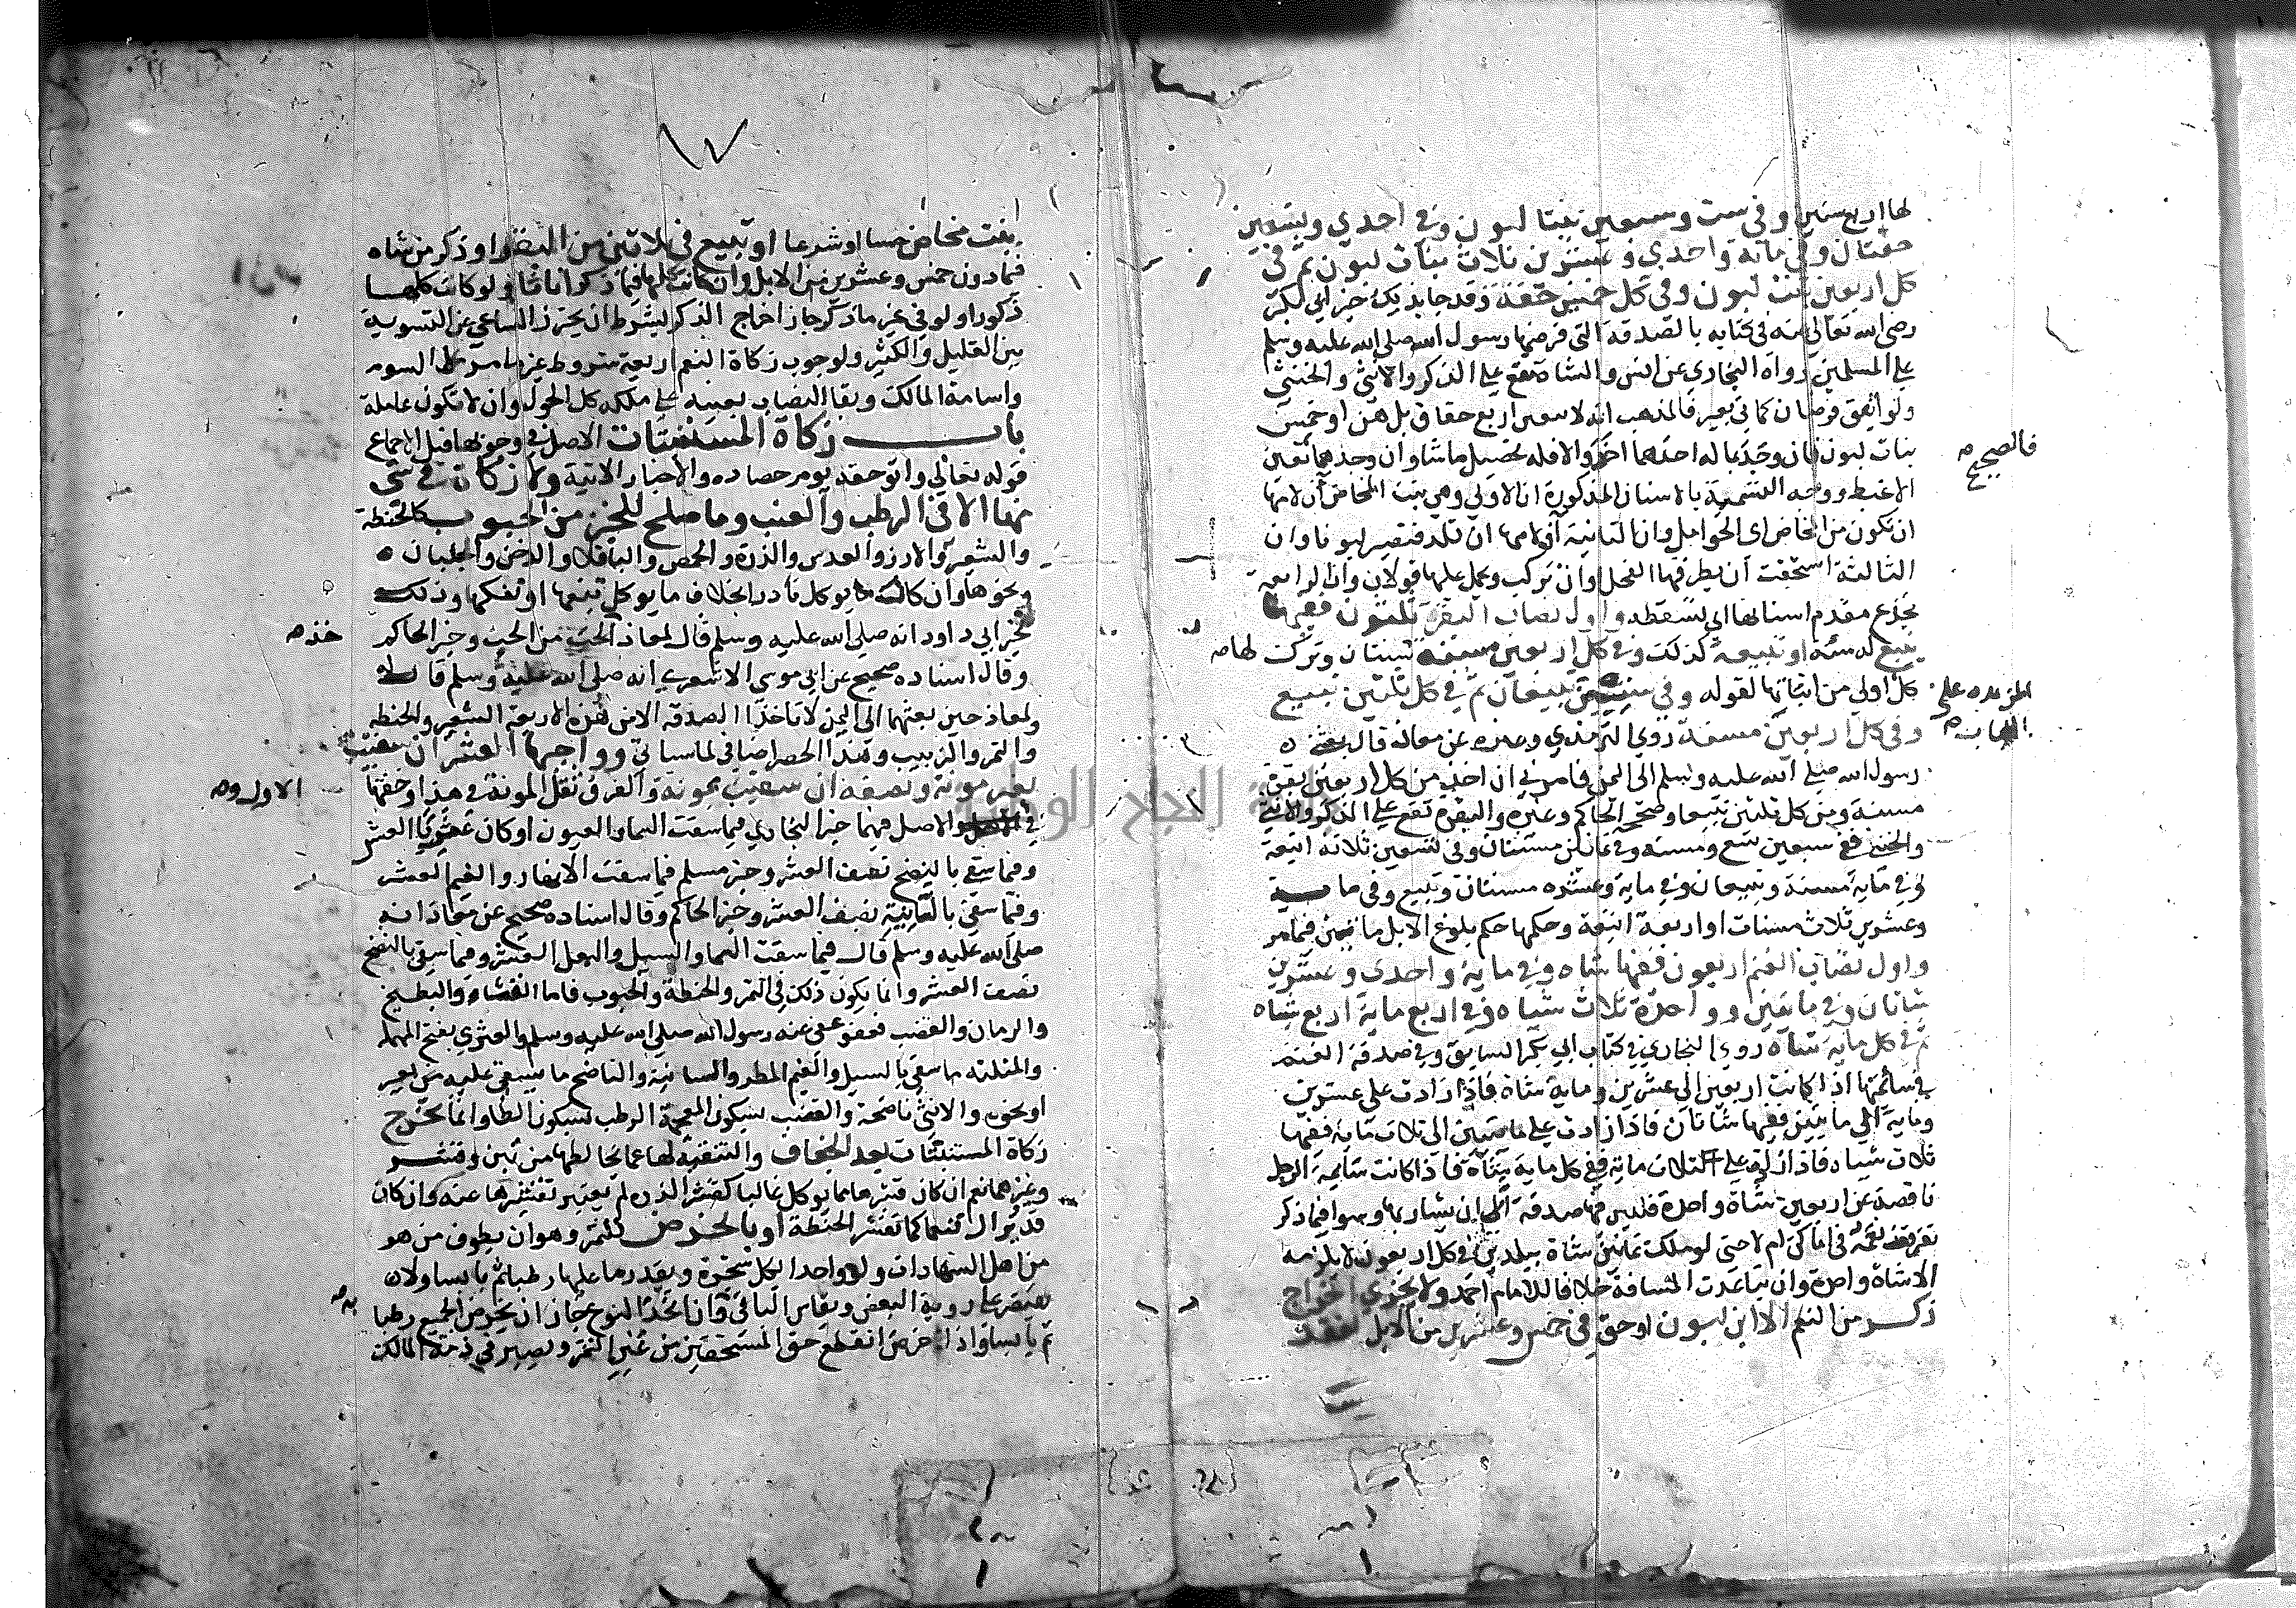 لها اربع سنين وفي ست وسبعين بنتا لبون وفي احدي وتسعين
حقتان وفي مائة واحدي وعشرين ثلاث بنات لبون ثم في
كل اربعين بنت لبون وفي كل خمسين حقة وقد جا بذلك خبر ابي بكر
رضي الله تعالي عنه في كتابه بالصدقة التي فرضها رسول الله صلي الله عليه وسلم
علي المسلمين رواه البخاري عن انس والشاة تقع علي الذكر والانثي والخنثي
ولو اتفق فرضان كما في بعير فالمذهب انه لا يتعين اربع حقاق بل هن او خمس
بنات لبون فان وجد بماله احدهما اخذ والا فله تحصيل ما شا وان وجدهما تعين
فالصحيح
الاغبط ووجه التسمية بالاسنان المذكورة ان الاولي وهي بنت المخاض ان لامها
ان تكون من المخاض اي الحوامل وان الثانية ان لامها ان تلد فتصير لبونا وان
الثالثة استحقت ان يطرقها الفحل وان تركب ويحمل عليها قولان وان الرابعة
تجذع مقدم اسنانها اي تسقطه واول نصاب البقر ثلثون ففيها
تبيع له سنة او تبيعة كذلك وفي كل اربعين مسنة لها سنتان وترك
كل اولي من اثباتها لقوله وفي ستين تبيعان ثم في كل ثلثين تبيع
المزيده علي
وفي كل اربعين مسنة روي الترمذي وغيره عن معاذ قال بعثني
رسول الله صلي الله عليه وسلم الي اليمن فامرني ان اخذ من كل اربعين بقرة
مسنة ومن كل ثلثين تبيعا وصححه الحاكم وغيره والبقرة تقع علي الذكر والانثي
والخنثي ففي سبعين تبيع ومسنة وفي ثمانين مسنتان وفي تسعين ثلاثة اتبعة
وفي ماية مسنة وتبيعان وفي ماية وعشره مسنتان وتبيع وفي ماية
وعشرين ثلاث مسنات او اربعة اتبعة وحكمها حكم بلوغ الابل مائتين فيما مر
واول نصاب الغنم اربعون ففيها شاه وفي ماية واحدي وعشرين
شاتان وفي مايتين وواحدة ثلاث شياه وفي اربع ماية اربع شياه
ثم في كل ماية شاه روي البخاري في كتاب ابي بكر السابق وفي صدقة الغنم
في سائمتها اذا كانت اربعين الي عشرين وماية شاة فاذا زادت علي عشرين
وماية الي مايتين ففيها شاتان فاذا زادت علي مايتين الي ثلاث ماية ففيها
ثلاث شياه فاذا زادت علي الثلاث ماية ففي كل ماية شاة فاذا كانت سايمة الرجل
ناقصة عن اربعين شاة واحدة فليس فيها صدقة الا ان يشا ربها وسوا فيما ذكر
تفرقت نعمه في اماكن ام لا حتي لو ملك ثمانين شاة ببلدين في كل اربعون لا يلزمه
الا شاة واحدة وان تباعدت المسافة خلافا للامام احمد ولا يجزي اخراج
ذكر من النعم الا ابن لبون او حق في خمس وعشرين من الابل لفقد
بنت مخاض حسا او شرعا او تبيع في ثلاثين من البقر او ذكر من شاه
فيما دون خمس وعشرين من الابل وان كانت كلها فيما ذكر اناثا ولو كانت كلها
ذكورا ولو في غير ما ذكر جاز اخراج الذكر بشرط ان يحترز الساعي عن التسوية
بين القليل والكثير ولوجوب زكاة النعم اربعة شروط غير ما مر السوم
واسامة المالك وبقا النصاب بعينه علي ملكه كل الحول وان لا تكون عاملة
باب زكاة المستنبتات الاصل في وجوبها قبل الاجماع
قوله تعالي واتو حقه يوم حصاده والاخبار الاتية ولا زكاة في شي
منها الا في الرطب والعنب وما صلح للخبز من الحبوب كالحنطة
والشعير والارز والعدس والذرة والحمص والباقلا والدخن والجلبان
ونحوها وان كانت ما يوكل نادرا بخلاف ما يوكل تنعما او تفكها وذلك
لخبر ابي داود انه صلي الله عليه وسلم قال لمعاذ خذ الحب من الحب وخبر الحاكم
وقال اسناده صحيح عن ابي موسي الاشعري انه صلي الله عليه وسلم قال له
ولمعاذ حين بعثهما الي اليمن لا تاخذا الصدقة الا من هذه الاربعة الشعير والحنطة
والتمر والزبيب وهذا الحصر اضافي لما سياتي وواجبها العشر ان سقيت
بغير مونة ونصفه ان سقيت بمونة والفرق ثقل المونة في هذا وخفتها
في الاول والاصل فيهما خبر البخاري فيما سقت السما والعيون او كان عثريا العشر
وفيما سقي بالنضح نصف العشر وخبر مسلم فيما سقت الانهار والغيم العشر
وفيما سقي بالسانية نصف العشر وخبر الحاكم وقال اسناده صحيح عن معاذ انه
صلي الله عليه وسلم قال فيما سقت السما والسيل والبعل العشر وفيما سقي بالنضح
نصف العشر وانما يكون ذلك في التمر والحنطة والحبوب فاما القثاء والبطيخ
والرمان والقضب فعفو عفي عنه رسول الله صلي الله عليه وسلم والعثري بفتح المهملة
والمثلثة ما سقي بالسيل والغيم المطر والسانية والناضح ما يسقي عليه من بعير
او نحوه والانثي ناضحة والقضب بسكون المعجمة الرطب بسكون الطا وانما تخرج
زكاة المستنبتات بعد الجفاف والتنقية لها عما يخالطها من تبن وقشر
وغيرهما نعم ان كان قشرها مما يوكل غالبا كقشر الذره لم يعتبر تقشيرها عنه وان كان
قد يزال تنعما كما تقشر الحنطة او بالخرص للتمر وهو ان يطوف من هو
من اهل الشهادات ولو واحدا بكل شجرة ويقدر ما عليها رطبا ثم يابسا ولا
يقتصر علي روية البعض ويقاس به الباقي فان اتحد النوع جاز ان يخرص الجميع رطبا
ثم يابسا واذا خرص انقطع حق المستحقين من عين التمر ويصير في ذمة المالك